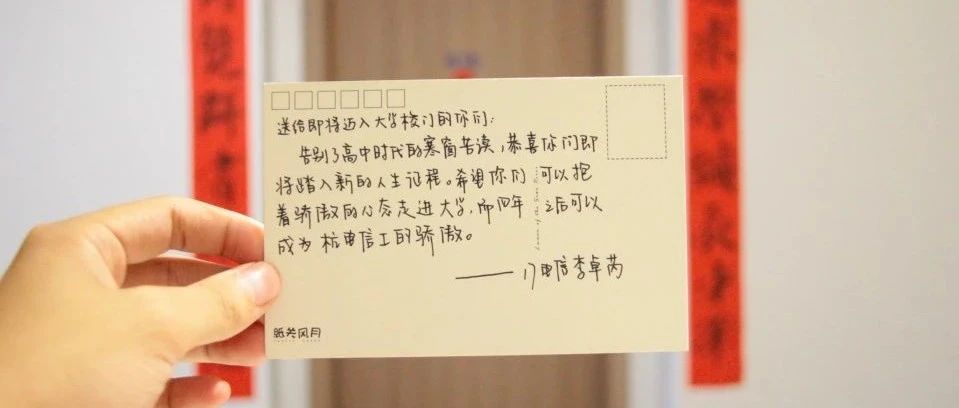 送给即将迈入大学校门的你们:
告别了高中时代的寒窗苦读,恭喜你们即
将踏入新的人生征程。希望你们可以抱
着骄傲的心态走进大学,而四年之后可以
成为杭电信工的骄傲。
——17电信李卓芮
纸关风月